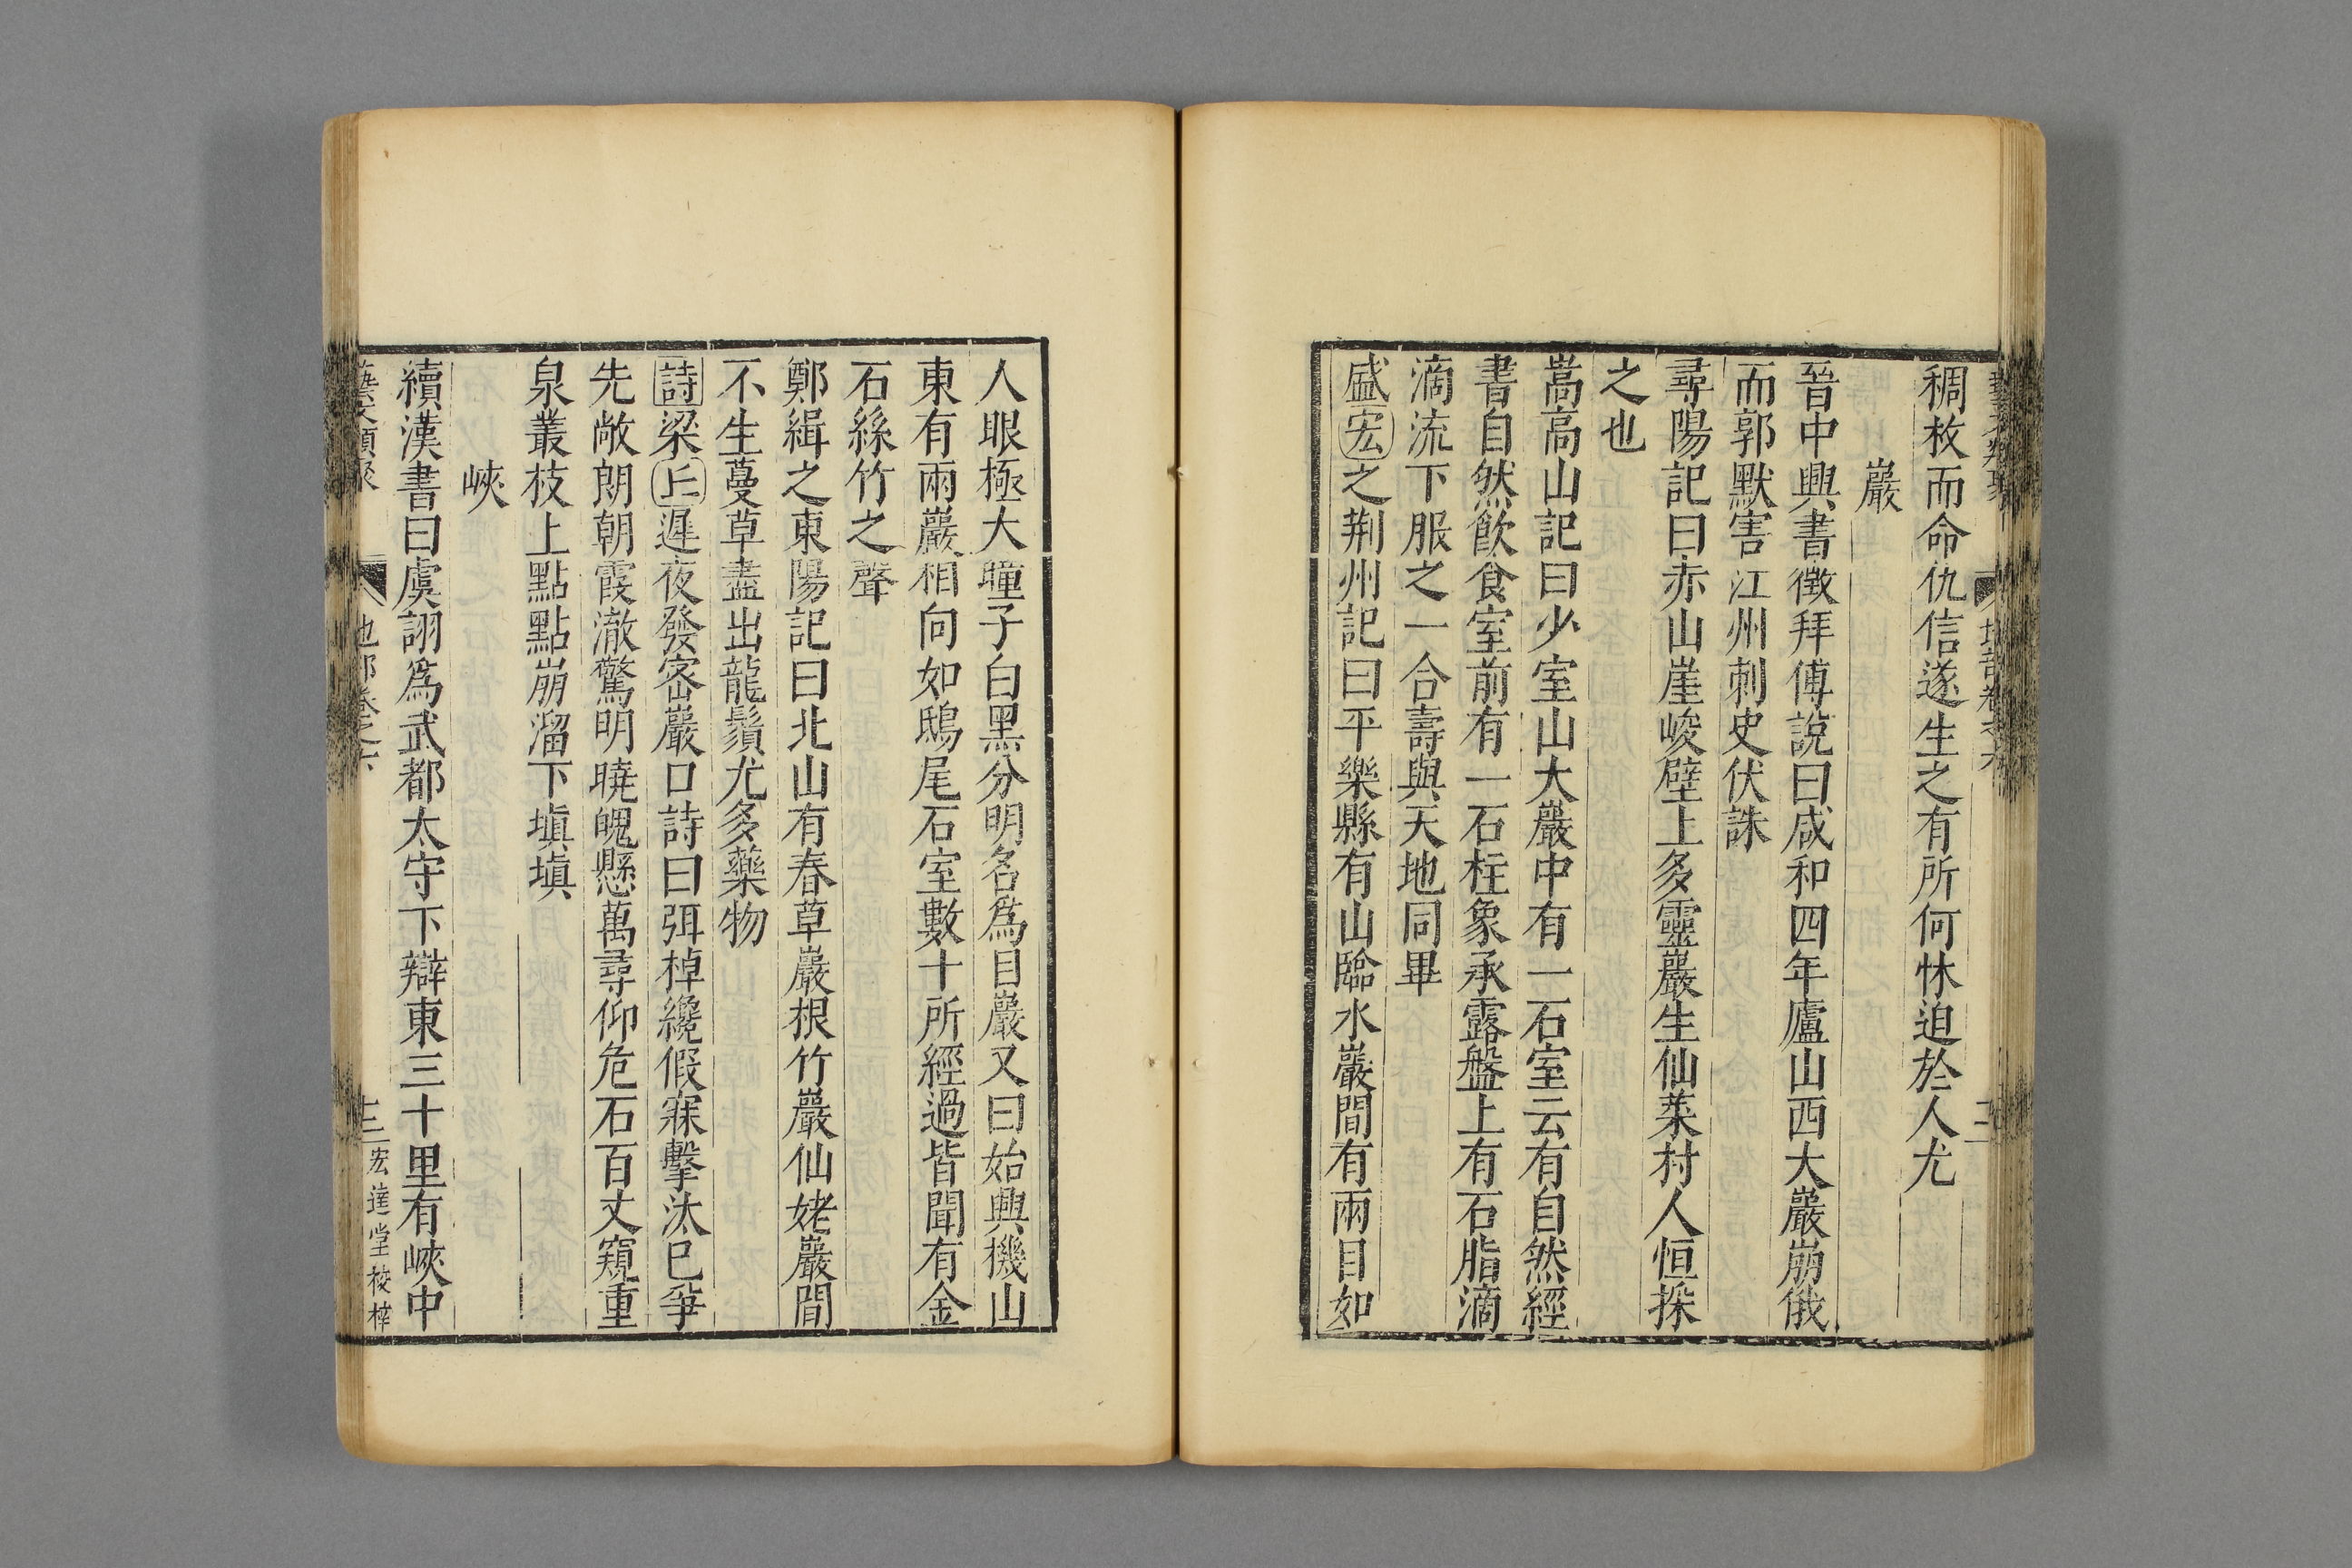 稠枚而命仇信遂生之有所何休迫於人尤
巖
晉中興書徵拜傅說曰咸和四年廬山西大巖崩俄
而郭默害江州刺史伏誅
尋陽記曰赤山崖峻壁上多靈巖生仙菜村人恒採
之也
嵩高山記曰少室山大巖中有一石室云有自然經
書自然飲食室前有一石柱象承露盤上有石脂滴
滴流下服之一合壽與天地同畢
盛宏之荆州記曰平樂縣有山臨水巖間有兩目如
人眼極大瞳子白黑分明名爲目巖又曰始興機山
東有兩巖相向如鴟尾石室數十所經過皆聞有金
石絲竹之聲
鄭緝之東陽記曰北山有春草巖根竹巖仙姥巖間
不生蔓草盡出龍鬚尤多藥物
詩梁丘遲夜發密巖口詩曰弭棹纔假寐擊汰已爭
先敞朗朝霞澈驚明曉魄懸萬尋仰危石百丈窺重
泉叢枝上點點崩溜下塡塡
峽
續漢書曰虞詡爲武都太守下辯東三十里有峽中
藝文類聚
地部卷之六
宏達堂校梓